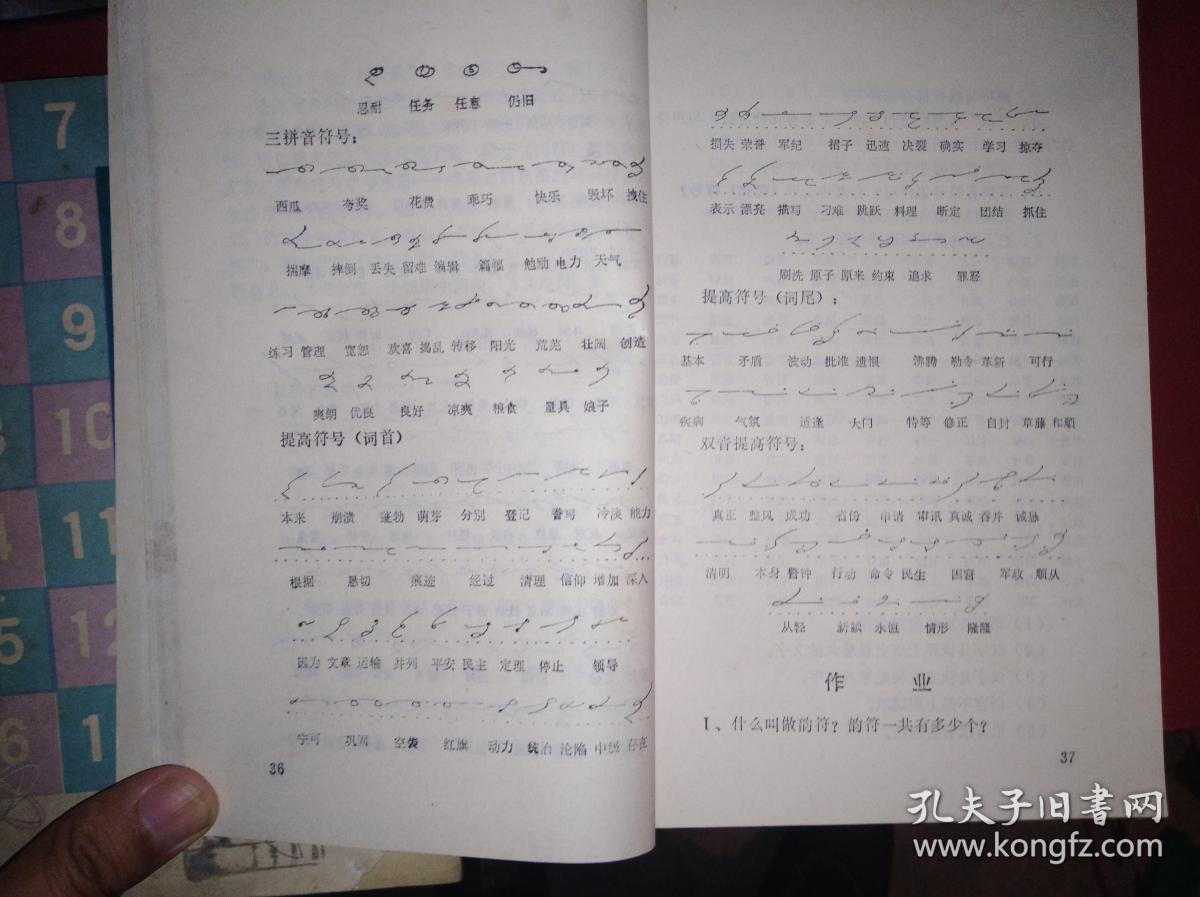 忍耐 任务 任意 仍旧
三拼音符号：
西瓜 夸奖 花费 乖巧 快乐 毁坏 拽住
揣摩 摔倒 丢失 留难 编辑 篇幅 勉励 电力 天气
练习 管理 宽恕 欢喜 捣乱 转移 阳光 荒芜 壮阔 创造
爽朗 优良 良好 凉爽 粮食 量具 娘子
提高符号（词首）
本来 崩溃 蓬勃 萌芽 分别 登记 誊写 冷淡 能力
根据 恳切 痕迹 经过 清理 信仰 增加 深入
因为 文章 运输 并列 平安 民主 定理 停止 领导
宁可 巩固 空袭 红旗 动力 统治 沦陷 中级 存在
36
损失 荣誉 军纪 裙子 迅速 决裂 确实 学习 掠夺
表示 漂亮 描写 刁难 跳跃 料理 断定 团结 抓住
刷洗 原子 原来 约束 追求 罪恶
提高符号（词尾）：
基本 矛盾 波动 批准 遗恨 沸腾 勒令 革新 可行
疾病 气氛 适逢 大门 特等 修正 自封 草藤 和顺
双音提高符号：
真正 整风 成功 省份 申请 审讯 真诚 吞并 诚恳
清明 本身 警钟 行动 命令 民生 困窘 军政 顺从
从轻 新颖 永恒 情形 隆隆
作 业
1、什么叫做韵符？韵符一共有多少个？
37
7
8
9
10
11
12
孔夫子旧书网
www.kongfz.com